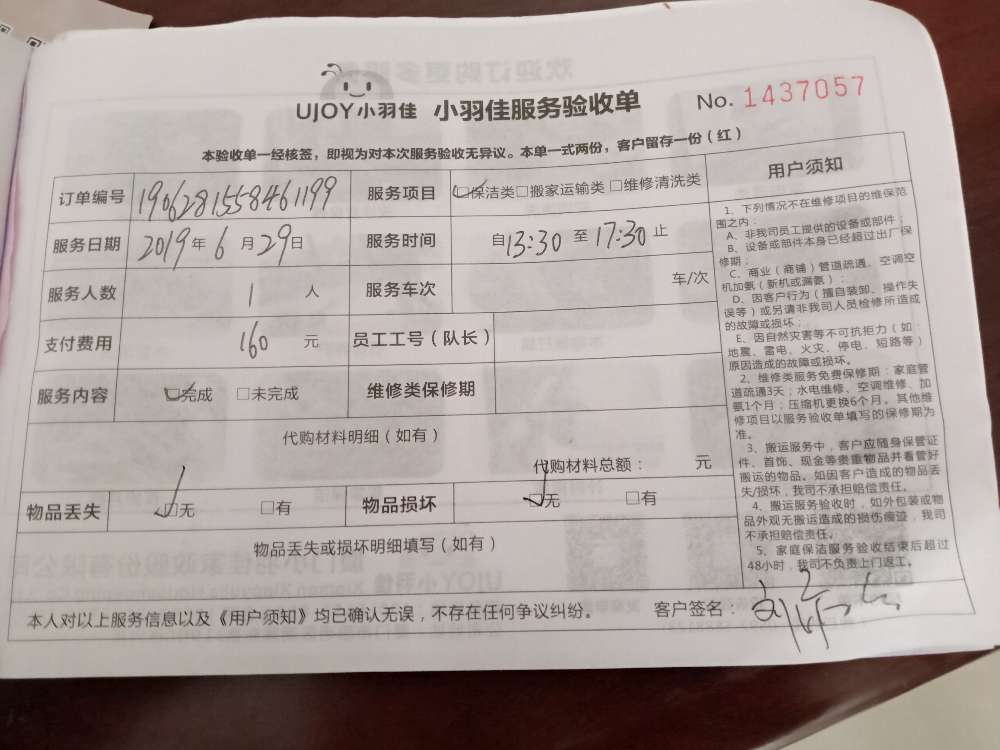 UJOY小羽佳 小羽佳服务验收单 No. 1437057
本验收单一经核签，即视为对本次服务验收无异议。本单一式两份，客户留存一份（红）
订单编号 1906281558461199 服务项目 ☑保洁类□搬家运输类□维修清洗类
服务日期 2019年6月29日 服务时间 自13:30至17:30止
服务人数 1人 服务车次 车/次
支付费用 160元 员工工号（队长）
服务内容 ☑完成 □未完成 维修类保修期
代购材料明细（如有）
代购材料总额： 元
物品丢失 ☑无 □有 物品损坏 ☑无 □有
物品丢失或损坏明细填写（如有）
用户须知
1、下列情况不在维修项目的维保范
围之内：
A、非我司员工提供的设备或部件；
B、设备或部件本身已经超过出厂保
修期；
C、商业（商铺）管道疏通、空调空
机加氨（新机或漏氨）；
D、因客户行为（擅自装卸、操作失
误等）或另请非我司人员检修所造成
的故障或损坏；
E、因自然灾害等不可抗拒力（如：
地震、雷电、火灾、停电、短路等）
原因造成的故障或损坏。
2、维修类服务免费保修期：家庭管
道疏通3天；水电维修、空调维修、加
氨1个月；压缩机更换6个月。其他维
修项目以服务验收单填写的保修期为
准。
3、搬运服务中，客户应随身保管证
件、首饰、现金等贵重物品并看管好
搬运的物品。如因客户造成的物品丢
失/损坏，我司不承担赔偿责任。
4、搬运服务验收时，如外包装或物
品外观无搬运造成的损伤痕迹，我司
不承担赔偿责任。
5、家庭保洁服务验收结束后超过
48小时，我司不负责上门返工。
本人对以上服务信息以及《用户须知》均已确认无误，不存在任何争议纠纷。 客户签名：